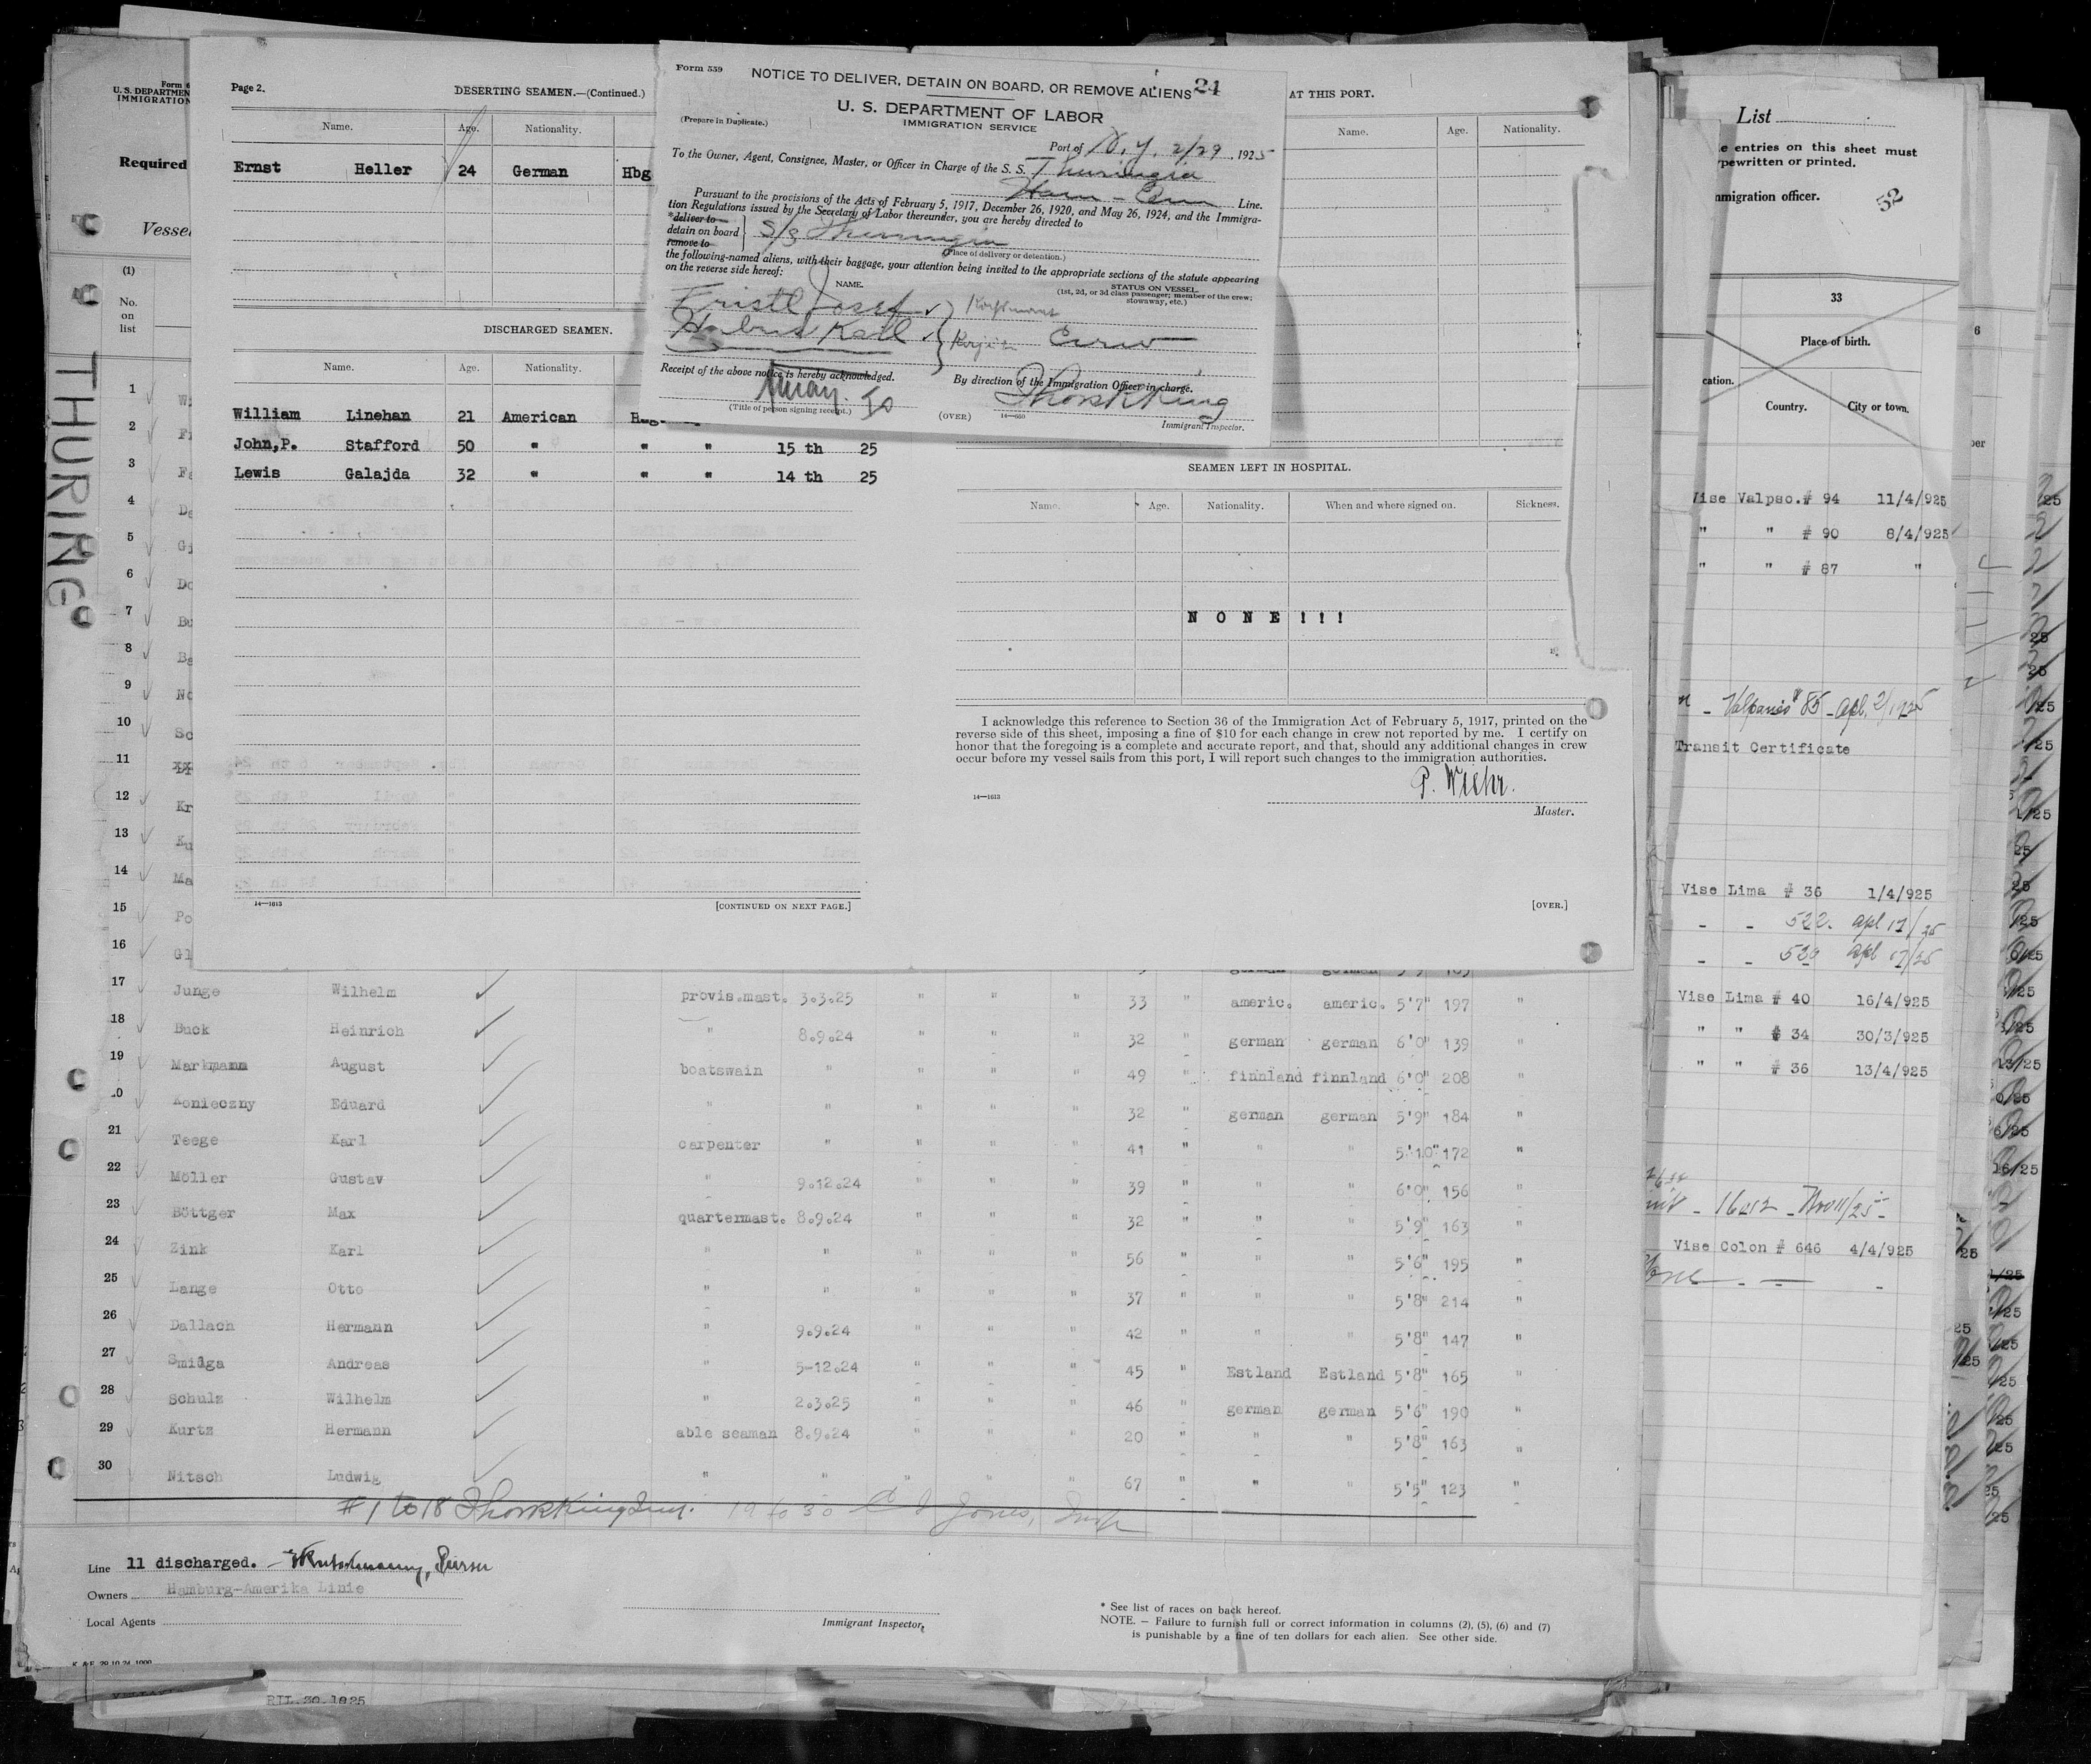 Form 559
NOTICE TO DELIVER, DETAIN ON BOARD, OR REMOVE ALIENS
21
U. S. DEPARTMENT OF LABOR
IMMIGRATION SERVICE
(Prepare in Duplicate.)
Port of N.Y. 2/29, 1925
To the Owner, Agent, Consignee, Master, or Officer in Charge of the S. S. Thuringia
Line.
Pursuant to the provisions of the Acts of February 5, 1917, December 26, 1920, and May 26, 1924, and the Immigra-
tion Regulations issued by the Secretary of Labor thereunder, you are hereby directed to
*deliver to
detain on board
remove to
S/S Thuringia
(Place of delivery or detention.)
the following-named aliens, with their baggage, your attention being invited to the appropriate sections of the statute appearing
on the reverse side hereof:
NAME.
STATUS ON VESSEL.
(1st, 2d, or 3d class passenger; member of the crew;
stowaway, etc.)
Josef
Karl Crew
Receipt of the above notice is hereby acknowledged.
By direction of the Immigration Officer in charge.
(Title of person signing receipt.)
(OVER)
14—650
Immigrant Inspector.
Page 2.
DESERTING SEAMEN.—(Continued.)
AT THIS PORT.
Name. Age. Nationality.
Name. Age. Nationality.
Ernst Heller 24 German Hbg
DISCHARGED SEAMEN.
Name. Age. Nationality.
William Linehan 21 American
John,P. Stafford 50 " " " 15 th 25
Lewis Galajda 32 " " " 14 th 25
SEAMEN LEFT IN HOSPITAL.
Name. Age. Nationality. When and where signed on. Sickness.
N O N E ! ! !
I acknowledge this reference to Section 36 of the Immigration Act of February 5, 1917, printed on the
reverse side of this sheet, imposing a fine of $10 for each change in crew not reported by me. I certify on
honor that the foregoing is a complete and accurate report, and that, should any additional changes in crew
occur before my vessel sails from this port, I will report such changes to the immigration authorities.
14—1613
Master.
14—1613
[CONTINUED ON NEXT PAGE.]
[OVER.]
U. S. DEPARTMEN
IMMIGRATION
Required
Vesse
(1)
No.
on
list
THURING
1
2
3
4
5
6
7
8
9
10
11
12
13
14
15
16
17 Junge Wilhelm provis.mast. 3.3.25 " " " 33 " americ. americ. 5'7" 197 "
18 Buck Heinrich " 8.9.24 " " " 32 " german german 6'0" 139 "
19 Markmann August boatswain " " " " 49 " finnland finnland 6'0" 208 "
Konieczny Eduard " " " " " 32 " german german 5'9" 184 "
21 Teege Karl carpenter " " " " 41 " " " 5'10" 172 "
22 Möller Gustav " 9.12.24 " " " 39 " " " 6'0" 156 "
23 Böttger Max quartermast. 8.9.24 " " " 32 " " " 5'9" 163 "
24 Zink Karl " " " " " 56 " " " 5'6" 195 "
25 Lange Otto " " " " " 37 " " " 5'8" 214 "
26 Dallach Hermann " 9.9.24 " " " 42 " " " 5'8" 147 "
27 Smidga Andreas " 5-12.24 " " " 45 " Estland Estland 5'8" 165 "
28 Schulz Wilhelm " 2.3.25 " " " 46 " german german 5'6" 190 "
29 Kurtz Hermann able seaman 8.9.24 " " " 20 " " " 5'8" 163 "
30 Nitsch Ludwig " " " " " 67 " " " 5'5" 123 "
#1 to 18 19 to 30 Jones,
Line 11 discharged.
Owners Hamburg-Amerika Linie
Local Agents
Immigrant Inspector.
* See list of races on back hereof.
NOTE. — Failure to furnish full or correct information in columns (2), (5), (6) and (7)
is punishable by a fine of ten dollars for each alien. See other side.
RIL.30.1925
List
e entries on this sheet must
pewritten or printed.
mmigration officer.
52
33
Place of birth.
cation.
Country. City or town.
Vise Valpso.# 94 11/4/925
" " # 90 8/4/925
" " # 87 "
Transit Certificate
Vise Lima # 36 1/4/925
- - 522. apl 17/25
Vise Lima # 40 16/4/925
" " # 34 30/3/925
" " # 36 13/4/925
Vise Colon # 646 4/4/925